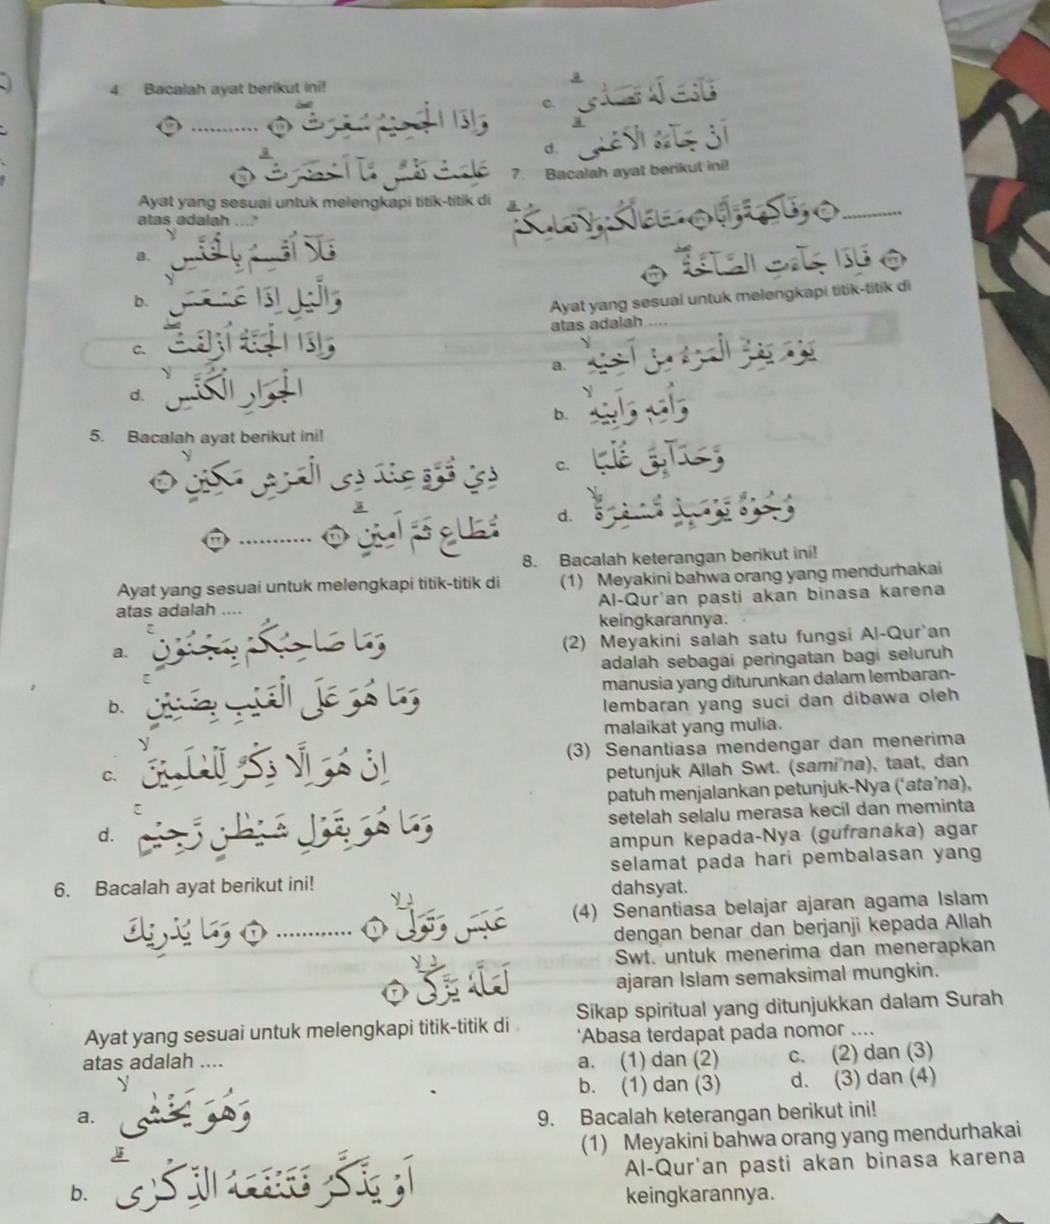 4. Bacalah ayat berikut ini!
وَإِذَا الْجَحِيْمُ سُعِّرَتْ ............
عَلِمَتْ نَفْسٌ مَّا أَحْضَرَتْ
Ayat yang sesuai untuk melengkapi titik-titik di
atas adalah ....?
a. فَلَا أُقْسِمُ بِالْخُنَّسِ
b. وَالَّيْلِ إِذَا عَسْعَسَ
c. وَإِذَا الْجَنَّةُ أُزْلِفَتْ
d. الْجَوَارِ الْكُنَّسِ
5. Bacalah ayat berikut ini!
ذِيْ قُوَّةٍ عِنْدَ ذِى الْعَرْشِ مَكِيْنٍ
مُطَاعٍ ثَمَّ أَمِيْنٍ ............
Ayat yang sesuai untuk melengkapi titik-titik di
atas adalah ....
a. وَمَا صَاحِبُكُمْ بِمَجْنُوْنٍ
b. وَمَا هُوَ عَلَى الْغَيْبِ بِضَنِيْنٍ
c. إِنْ هُوَ إِلَّا ذِكْرٌ لِّلْعٰلَمِيْنَ
d. وَمَا هُوَ بِقَوْلِ شَيْطٰنٍ رَّجِيْمٍ
6. Bacalah ayat berikut ini!
عَبَسَ وَتَوَلّٰى ............ وَمَا يُدْرِيْكَ
لَعَلَّهُ يَزَّكّٰى
Ayat yang sesuai untuk melengkapi titik-titik di
atas adalah ....
a. وَهُوَ يَخْشٰى
b. أَوْ يَذَّكَّرُ فَتَنْفَعَهُ الذِّكْرٰى
c. فَأَنْتَ لَهُ تَصَدّٰى
d. أَنْ جَاءَهُ الْأَعْمٰى
7. Bacalah ayat berikut ini!
............ وَفَاكِهَةً وَّأَبًّا مَتَاعًا لَّكُمْ وَلِأَنْعَامِكُمْ
فَإِذَا جَاءَتِ الصَّاخَّةُ
Ayat yang sesuai untuk melengkapi titik-titik di
atas adalah ....
a. يَوْمَ يَفِرُّ الْمَرْءُ مِنْ أَخِيْهِ
b. وَأُمِّهِ وَأَبِيْهِ
c. وَحَدَائِقَ غُلْبًا
d. وُجُوْهٌ يَّوْمَئِذٍ مُّسْفِرَةٌ
8. Bacalah keterangan berikut ini!
(1) Meyakini bahwa orang yang mendurhakai
Al-Qur'an pasti akan binasa karena
keingkarannya.
(2) Meyakini salah satu fungsi Al-Qur'an
adalah sebagai peringatan bagi seluruh
manusia yang diturunkan dalam lembaran-
lembaran yang suci dan dibawa oleh
malaikat yang mulia.
(3) Senantiasa mendengar dan menerima
petunjuk Allah Swt. (sami'na), taat, dan
patuh menjalankan petunjuk-Nya ('ata'na),
setelah selalu merasa kecil dan meminta
ampun kepada-Nya (gufranaka) agar
selamat pada hari pembalasan yang
dahsyat.
(4) Senantiasa belajar ajaran agama Islam
dengan benar dan berjanji kepada Allah
Swt. untuk menerima dan menerapkan
ajaran Islam semaksimal mungkin.
Sikap spiritual yang ditunjukkan dalam Surah
'Abasa terdapat pada nomor ....
a. (1) dan (2) c. (2) dan (3)
b. (1) dan (3) d. (3) dan (4)
9. Bacalah keterangan berikut ini!
(1) Meyakini bahwa orang yang mendurhakai
Al-Qur'an pasti akan binasa karena
keingkarannya.